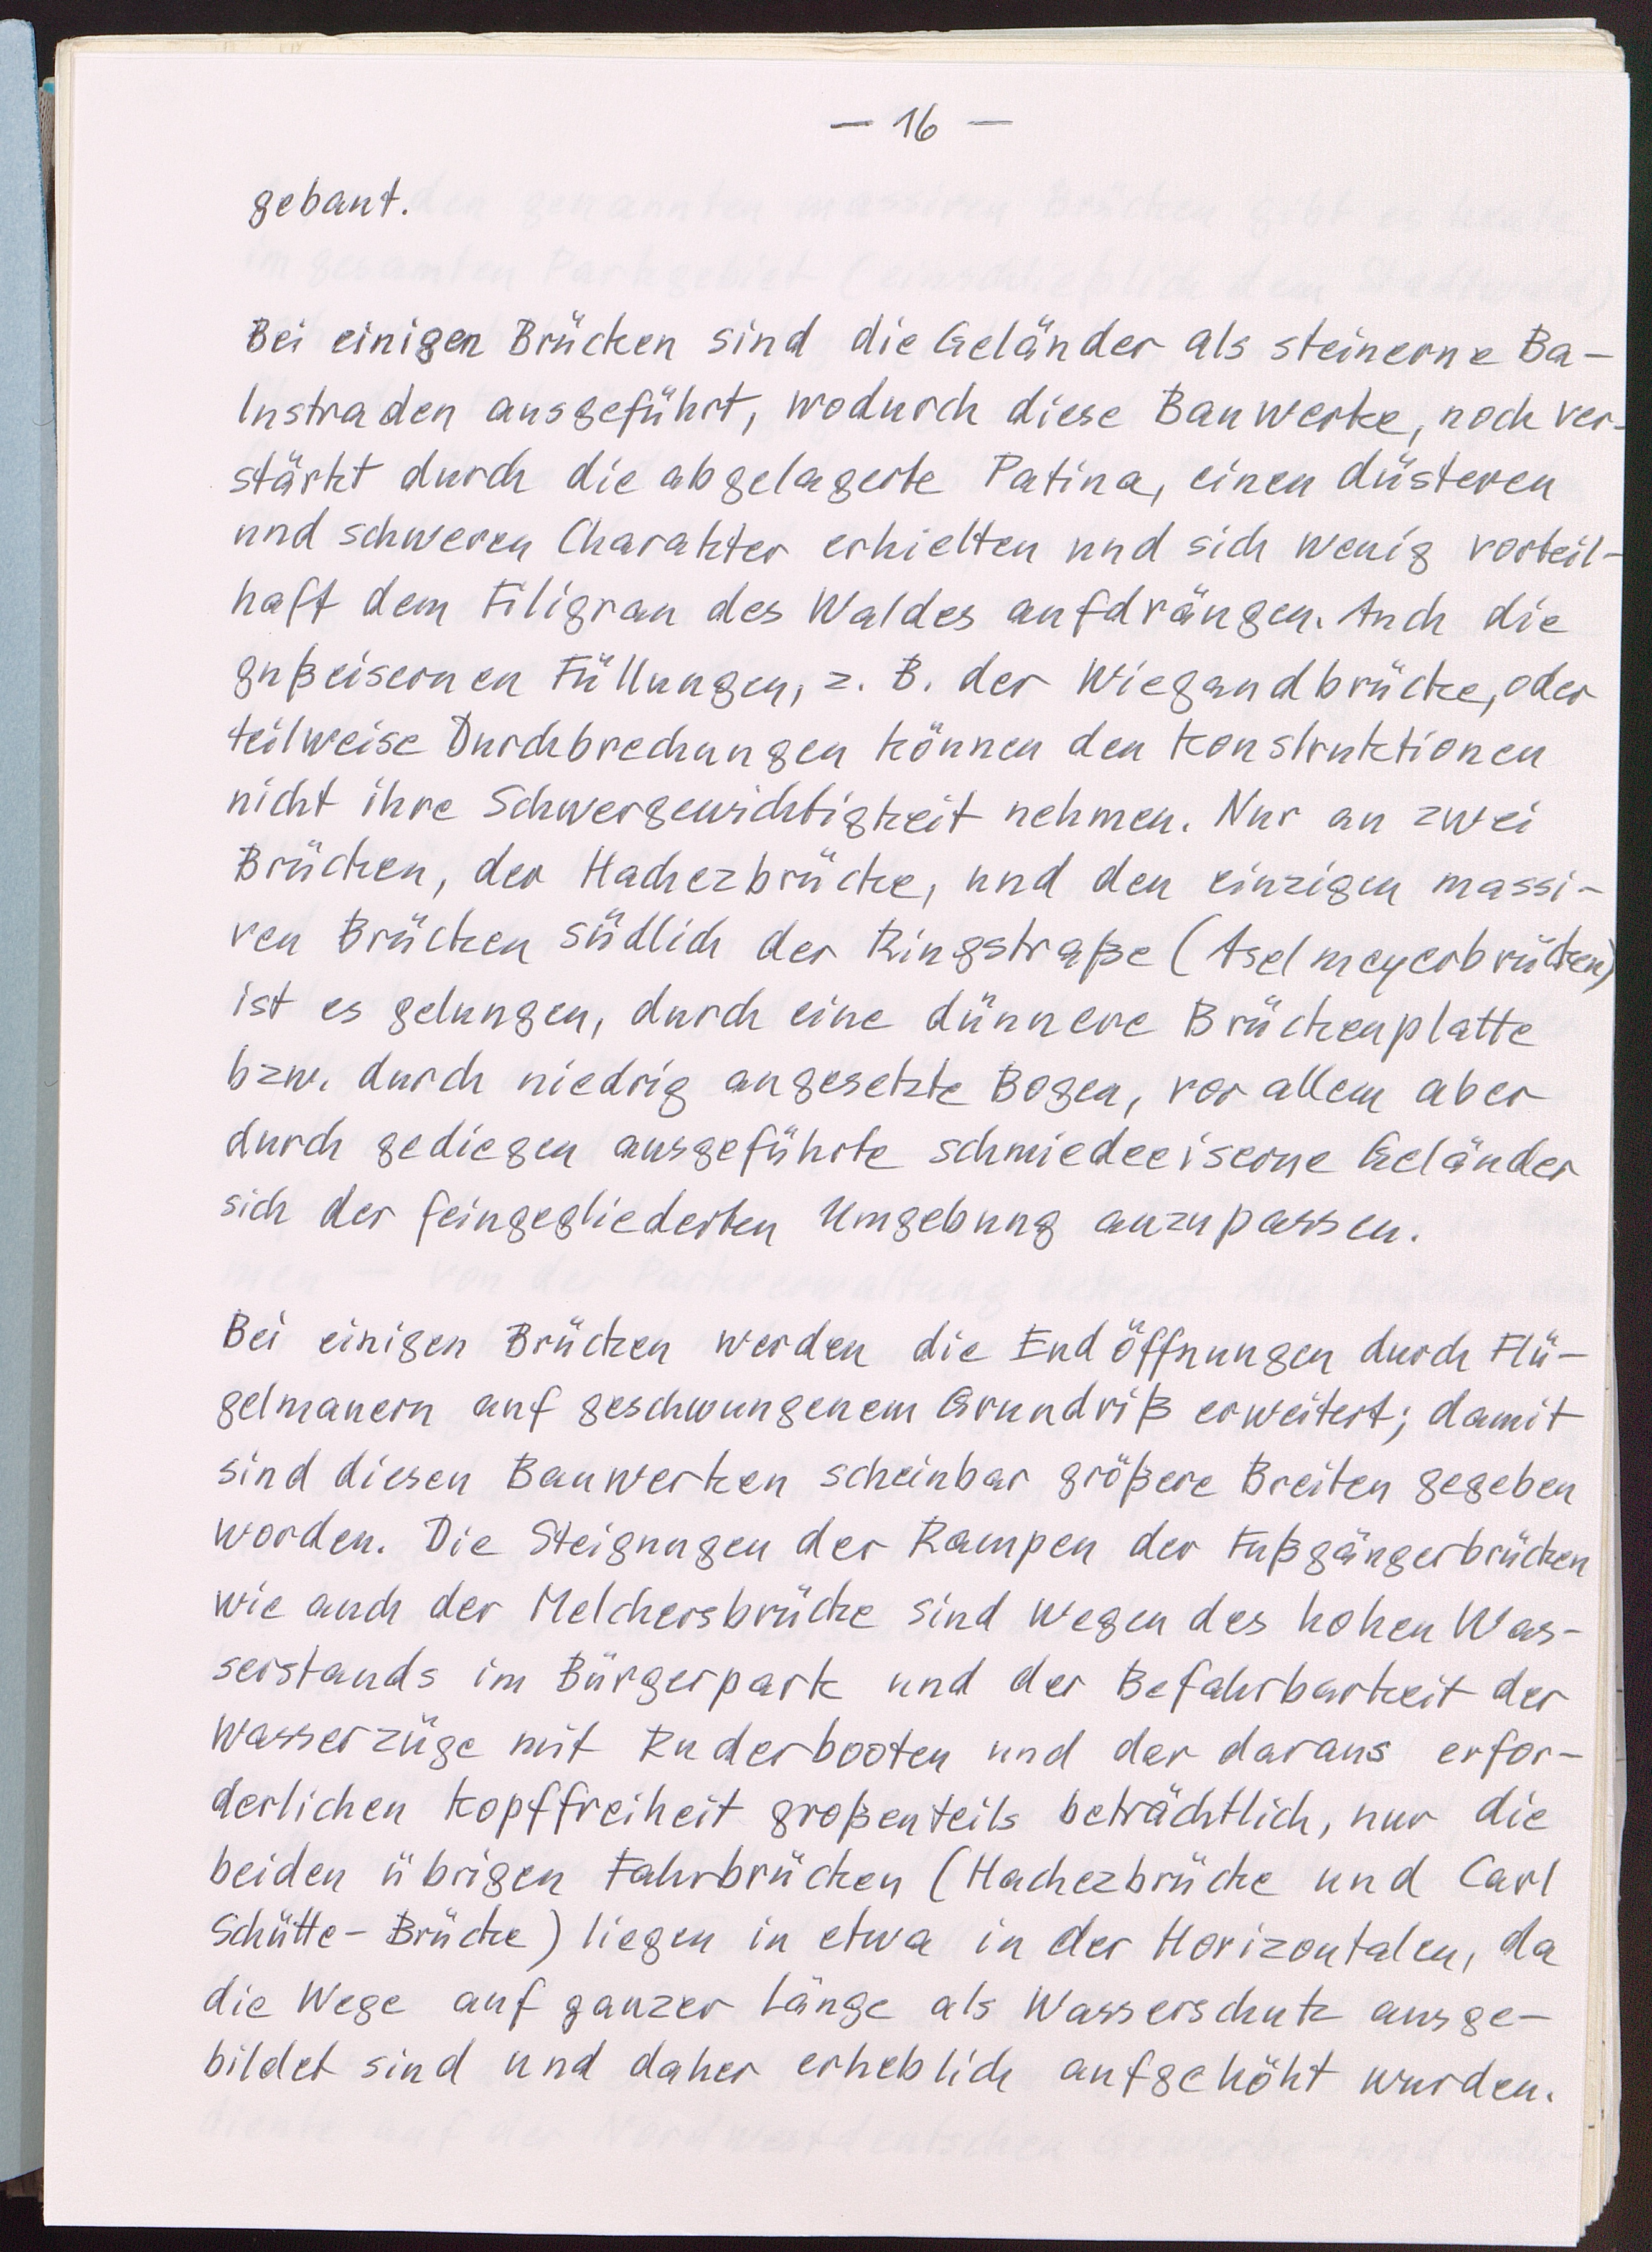 — 16 —
gebaut.
Bei einigen Brücken sind die Geländer als steinerne Ba-
lustraden ausgeführt, wodurch diese Bauwerke, noch ver-
stärkt durch die abgelagerte Patina, einen düsteren
und schweren Charakter erhielten und sich wenig vorteil-
haft dem Filigran des Waldes aufdrängen. Auch die
gußeisernen Füllungen, z. B. der Wiegandbrücke, oder
teilweise Durchbrechungen können den Konstruktionen
nicht ihre Schwergewichtigkeit nehmen. Nur an zwei
Brücken, der Hachezbrücke, und den einzigen massi-
ven Brücken südlich der Ringstraße (Aselmeyerbrücken)
ist es gelungen, durch eine dünnere Brückenplatte
bzw. durch niedrig angesetzte Bogen, vor allem aber
durch gediegen ausgeführte schmiedeeiserne Geländer
sich der feingegliederten Umgebung anzupassen.
Bei einigen Brücken werden die Endöffnungen durch Flü-
gelmauern auf geschwungenem Grundriß erweitert; damit
sind diesen Bauwerken scheinbar größere Breiten gegeben
worden. Die Steigungen der Rampen der Fußgängerbrücken
wie auch der Melchersbrücke sind wegen des hohen Was-
serstands im Bürgerpark und der Befahrbarkeit der
Wasserzüge mit Ruderbooten und der daraus erfor-
derlichen Kopffreiheit großenteils beträchtlich, nur die
beiden übrigen Fahrbrücken (Hachezbrücke und Carl
Schütte-Brücke) liegen in etwa in der Horizontalen, da
die Wege auf ganzer Länge als Wasserschutz ausge-
bildet sind und daher erheblich aufgehöht wurden.